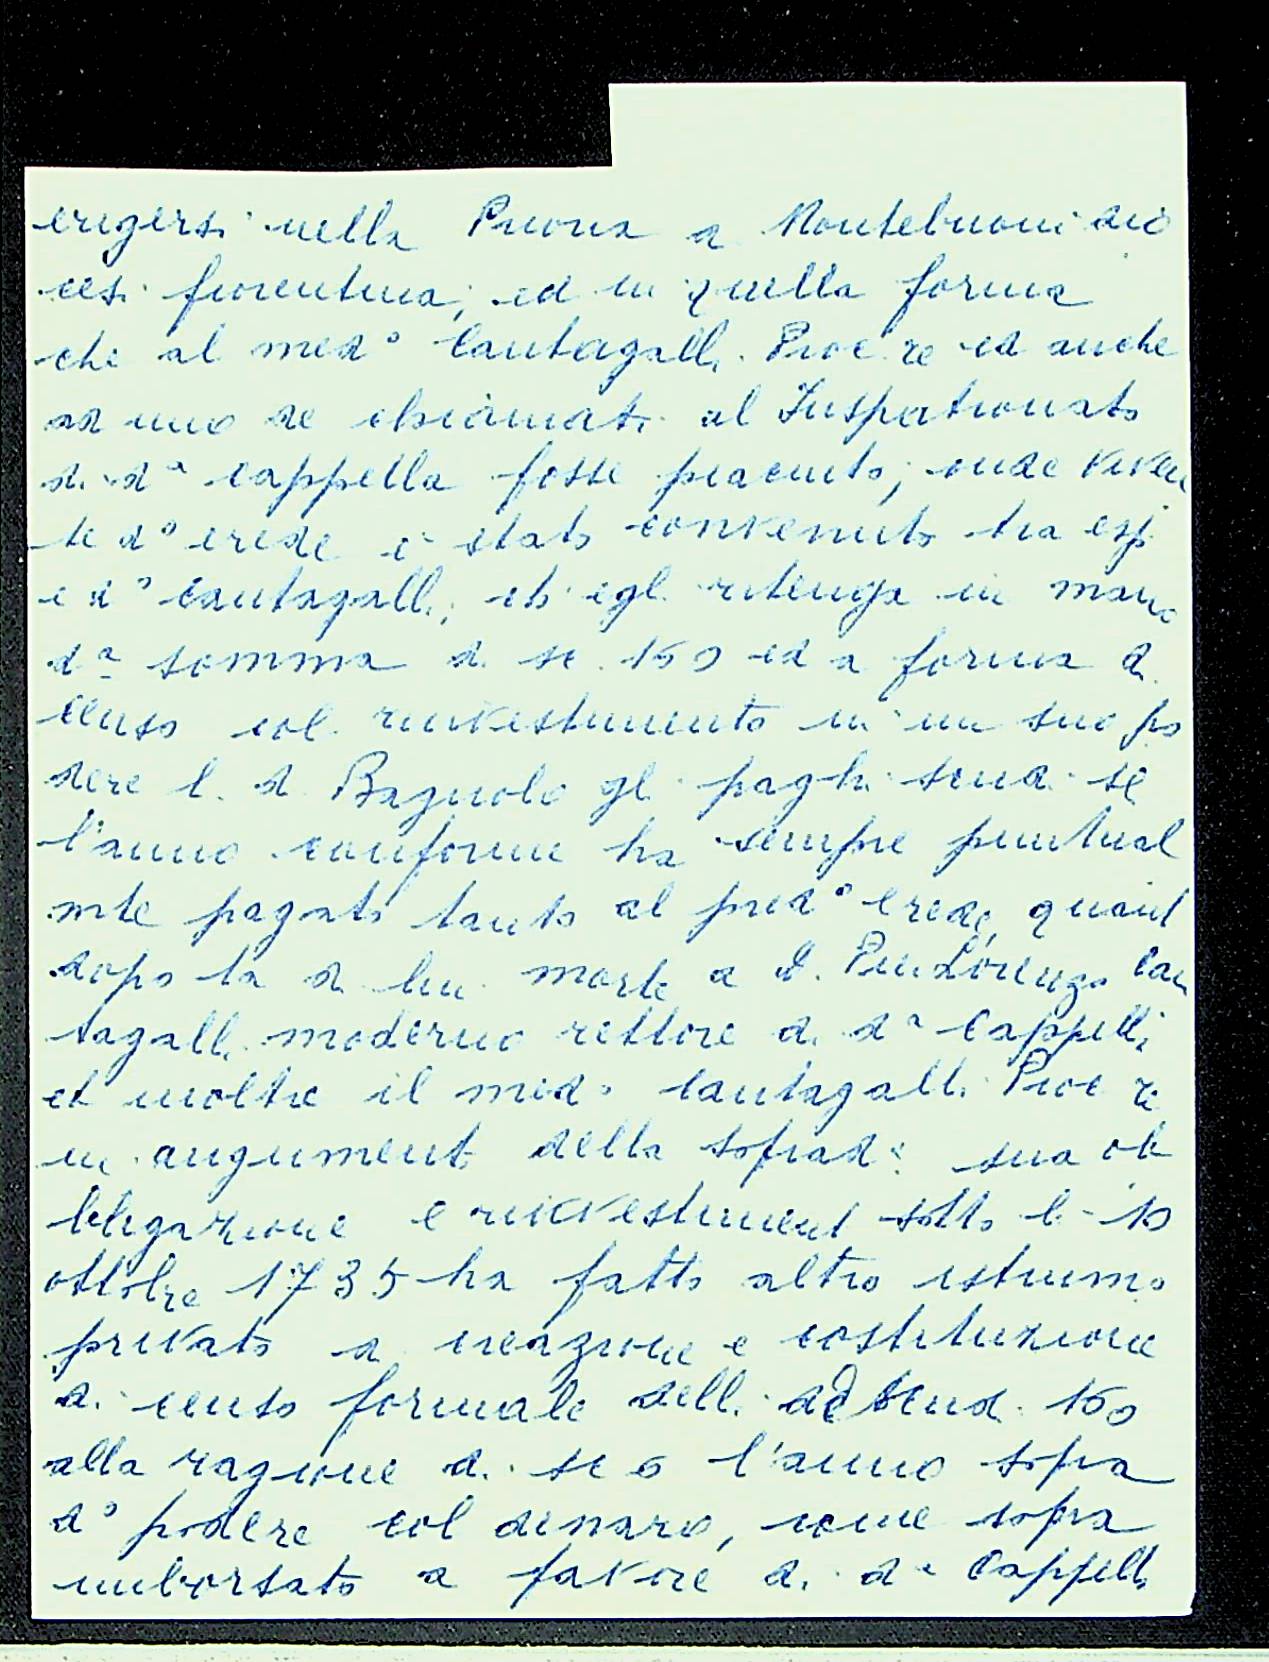 erigersi nella Prioria a Montebuoni dio
cesi fiorentina, ed in quella forma
che al med° Cantagalli Proc re ed anche
ad uno de chiamati al Juspatronato
di da cappella fosse piaciuto; onde viven
te d° erede è stato convenuto tra essi
e d° Cantagalli, ch' egli ritenga in mano
da somma di sc. 150 ed a forma di
censo col rinvestimento in un suo po
dere l. d. Bagnolo gli paghi scudi sei
l'anno conforme ha sempre puntual
mte pagato tanto al pred° erede, quant
dopo la di lui morte a D. Pier Lorenzo Can
tagalli moderno rettore di da Cappella
et inoltre il med° Cantagalli Proc re
in augumento della soprad: sua ob
bligazione e rinvestimento sotto li 10
ottobre 1735 ha fatto altro istrumo
privato di creazione e costituzione
di censo formale delli dd scudi 150
alla ragione di sc 6 l'anno sopra
d° podere col denaro, come sopra
imborsato a favore di da Cappella